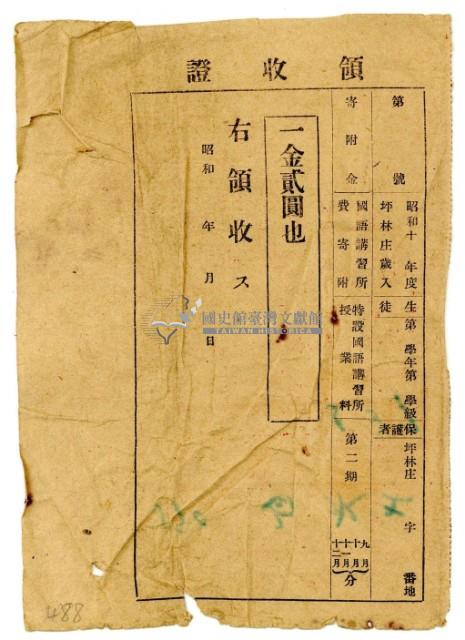 領收證
第 號
昭和十 年度 坪林庄歲入
生徒 第 學年第 學級
保護者
坪林庄 字 番地
寄附金
國語講習所費寄附
特設國語講習所授業料
第二期
九月 十月 十一月 十二月 分
一金貳圓也
右領收ス
昭和 年 月 日
國史館臺灣文獻館
TAIWAN HISTORICA
488